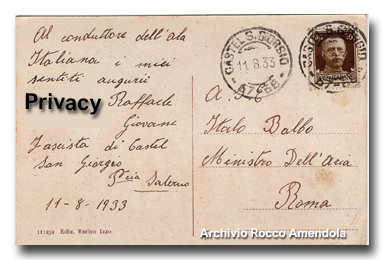 Al conduttore dell'ala
Italiana i miei
sentiti augurii
Privacy Raffaele
Giovane
Fascista di Castel
San Giorgio
Salerno
11-8-1933
111232 Ediz. Enrico Izzo
CASTEL S. GIORGIO
11.8.33
A S. E.
Italo Balbo
Ministro Dell'Aria
Roma
Archivio Rocco Amendola